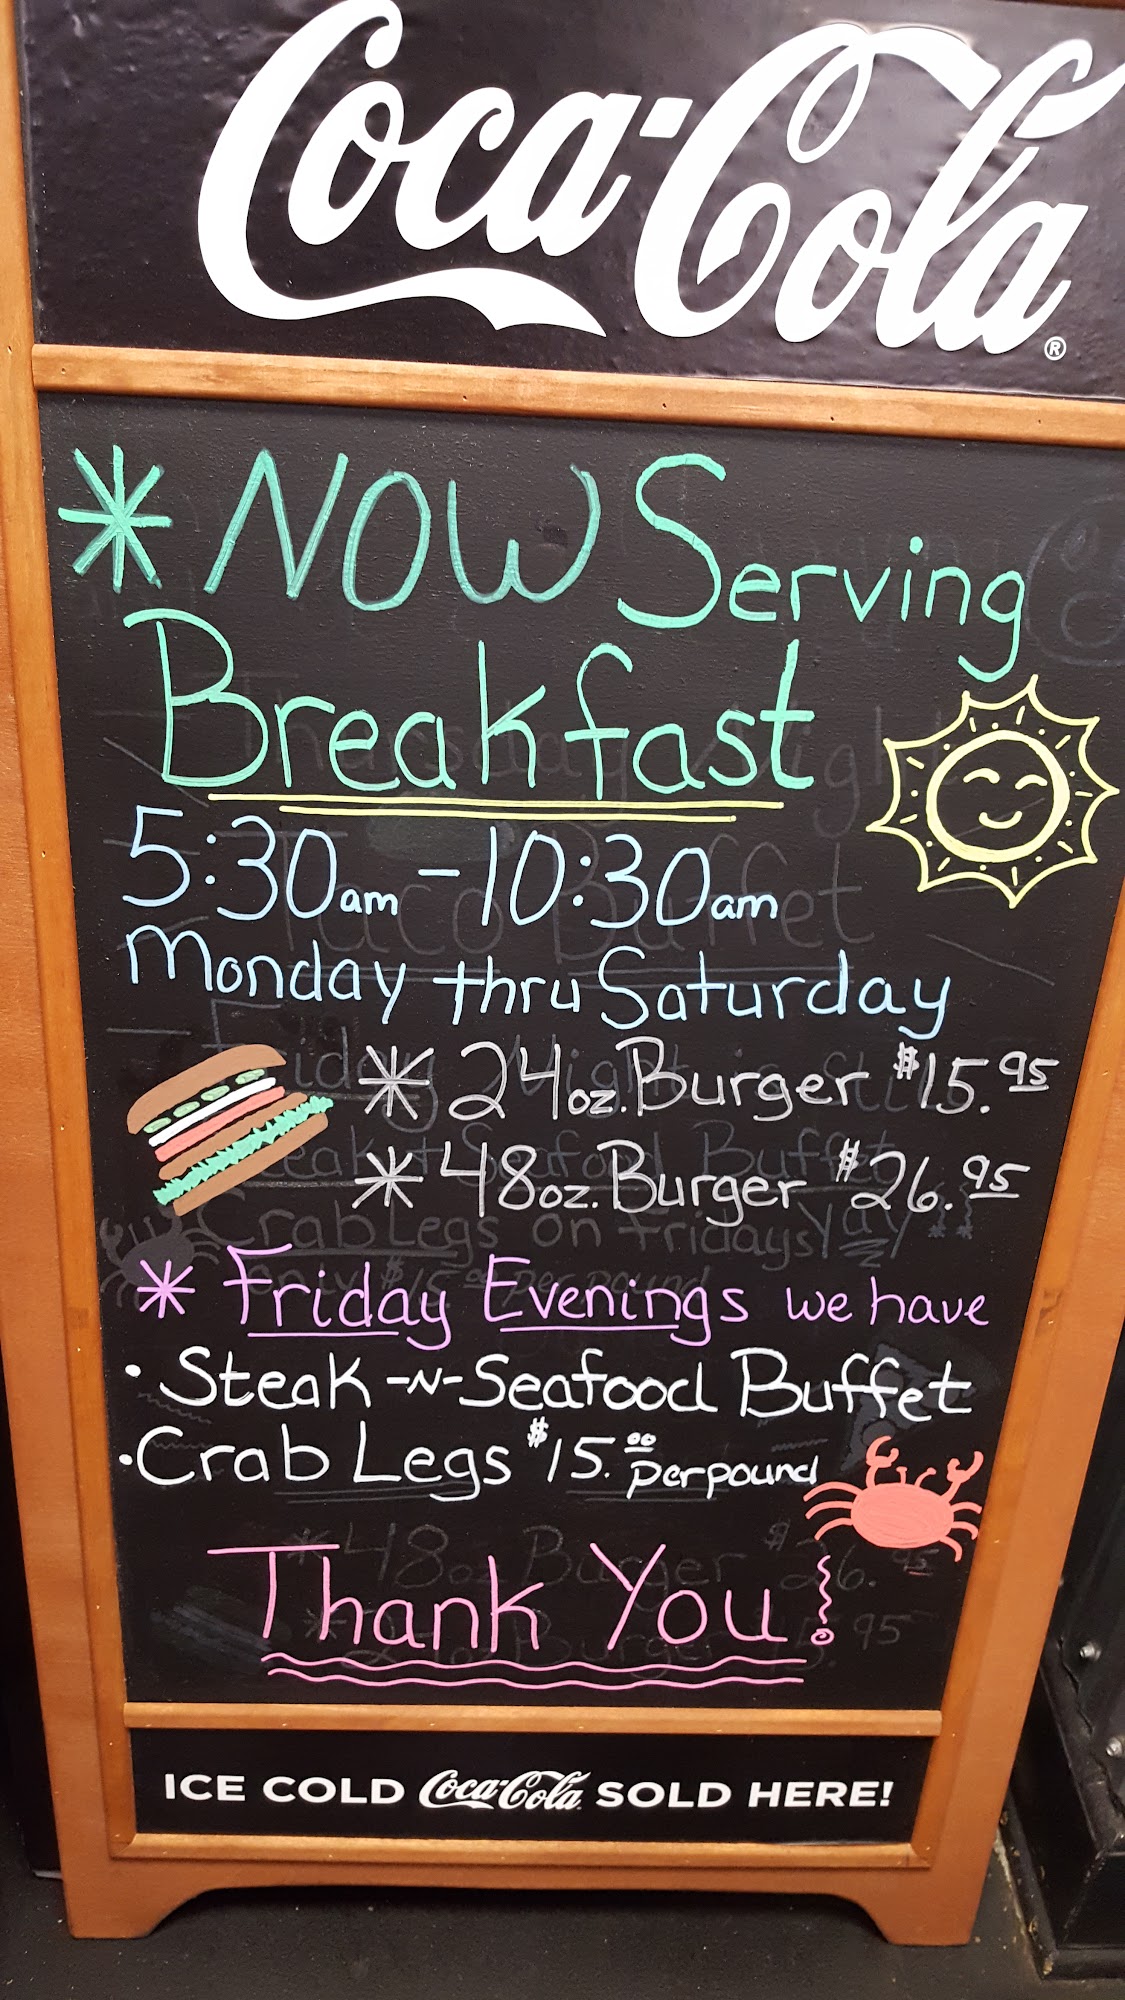 Coca-Cola®
* NOW Serving
Breakfast
5:30am - 10:30am
Monday thru Saturday
* 24oz. Burger $15.95
* 48oz. Burger $26.95
* Friday Evenings we have
• Steak -N- Seafood Buffet
• Crab Legs $15.00 per pound
Thank You!
ICE COLD Coca-Cola SOLD HERE!